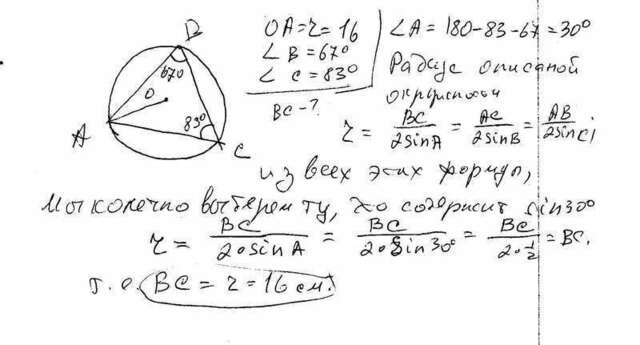 B
67°
O
83°
A
C
OA=r=16
∠B=67°
∠C=83°
BC-?
∠A=180-83-67=30°
Радиус описаной
окружности
r = BC/2sinA = AC/2sinB = AB/2sinC
из всех этих формул,
Мы конечно выберем ту, что содержит sin30°
r = BC/2∘sinA = BC/2∘sin30° = BC/2∘½ = BC.
т.е. BC = r = 16 см.